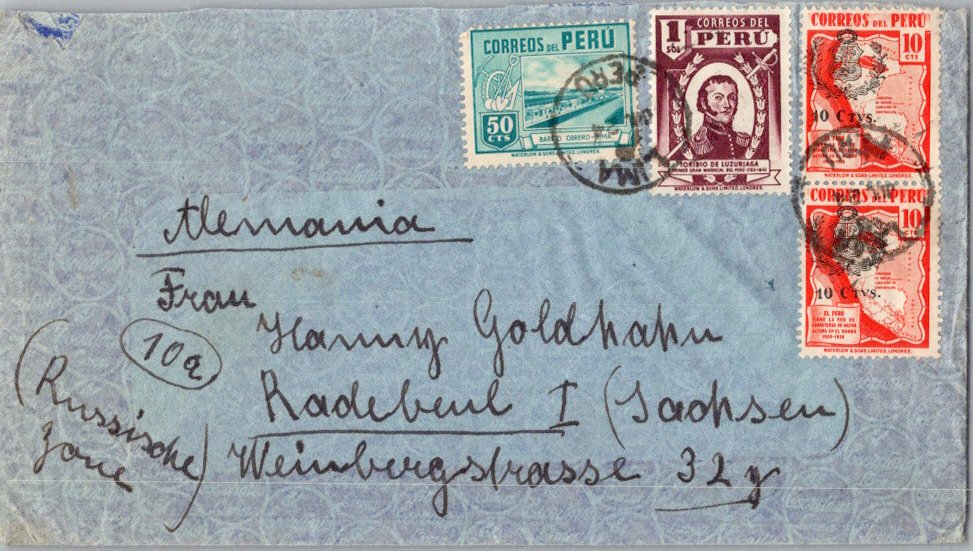 CORREOS DEL PERÚ
50 CTS
BARRIO OBRERO-LIMA
WATERLOW & SONS LIMITED, LONDRES.
1 SOL
CORREOS DEL PERÚ
TORIBIO DE LUZURIAGA
PRIMER GRAN MARISCAL DEL PERU 1782-1842
WATERLOW & SONS LIMITED, LONDRES.
CORREOS DEL PERÚ
10 CTS
10 CTVS.
WATERLOW & SONS LIMITED, LONDRES.
CORREOS DEL PERÚ
10 CTS
10 CTVS.
EL PERÚ
TIENE LA RED DE
CARRETERAS DE MAYOR
ALTURA EN EL MUNDO
WATERLOW & SONS LIMITED, LONDRES.
LIMA
PERU
Alemania
Frau
10a
Hanny Goldhahn
Radebeul I (Sachsen)
Weinbergstrasse 32 g
(Russische
Zone)